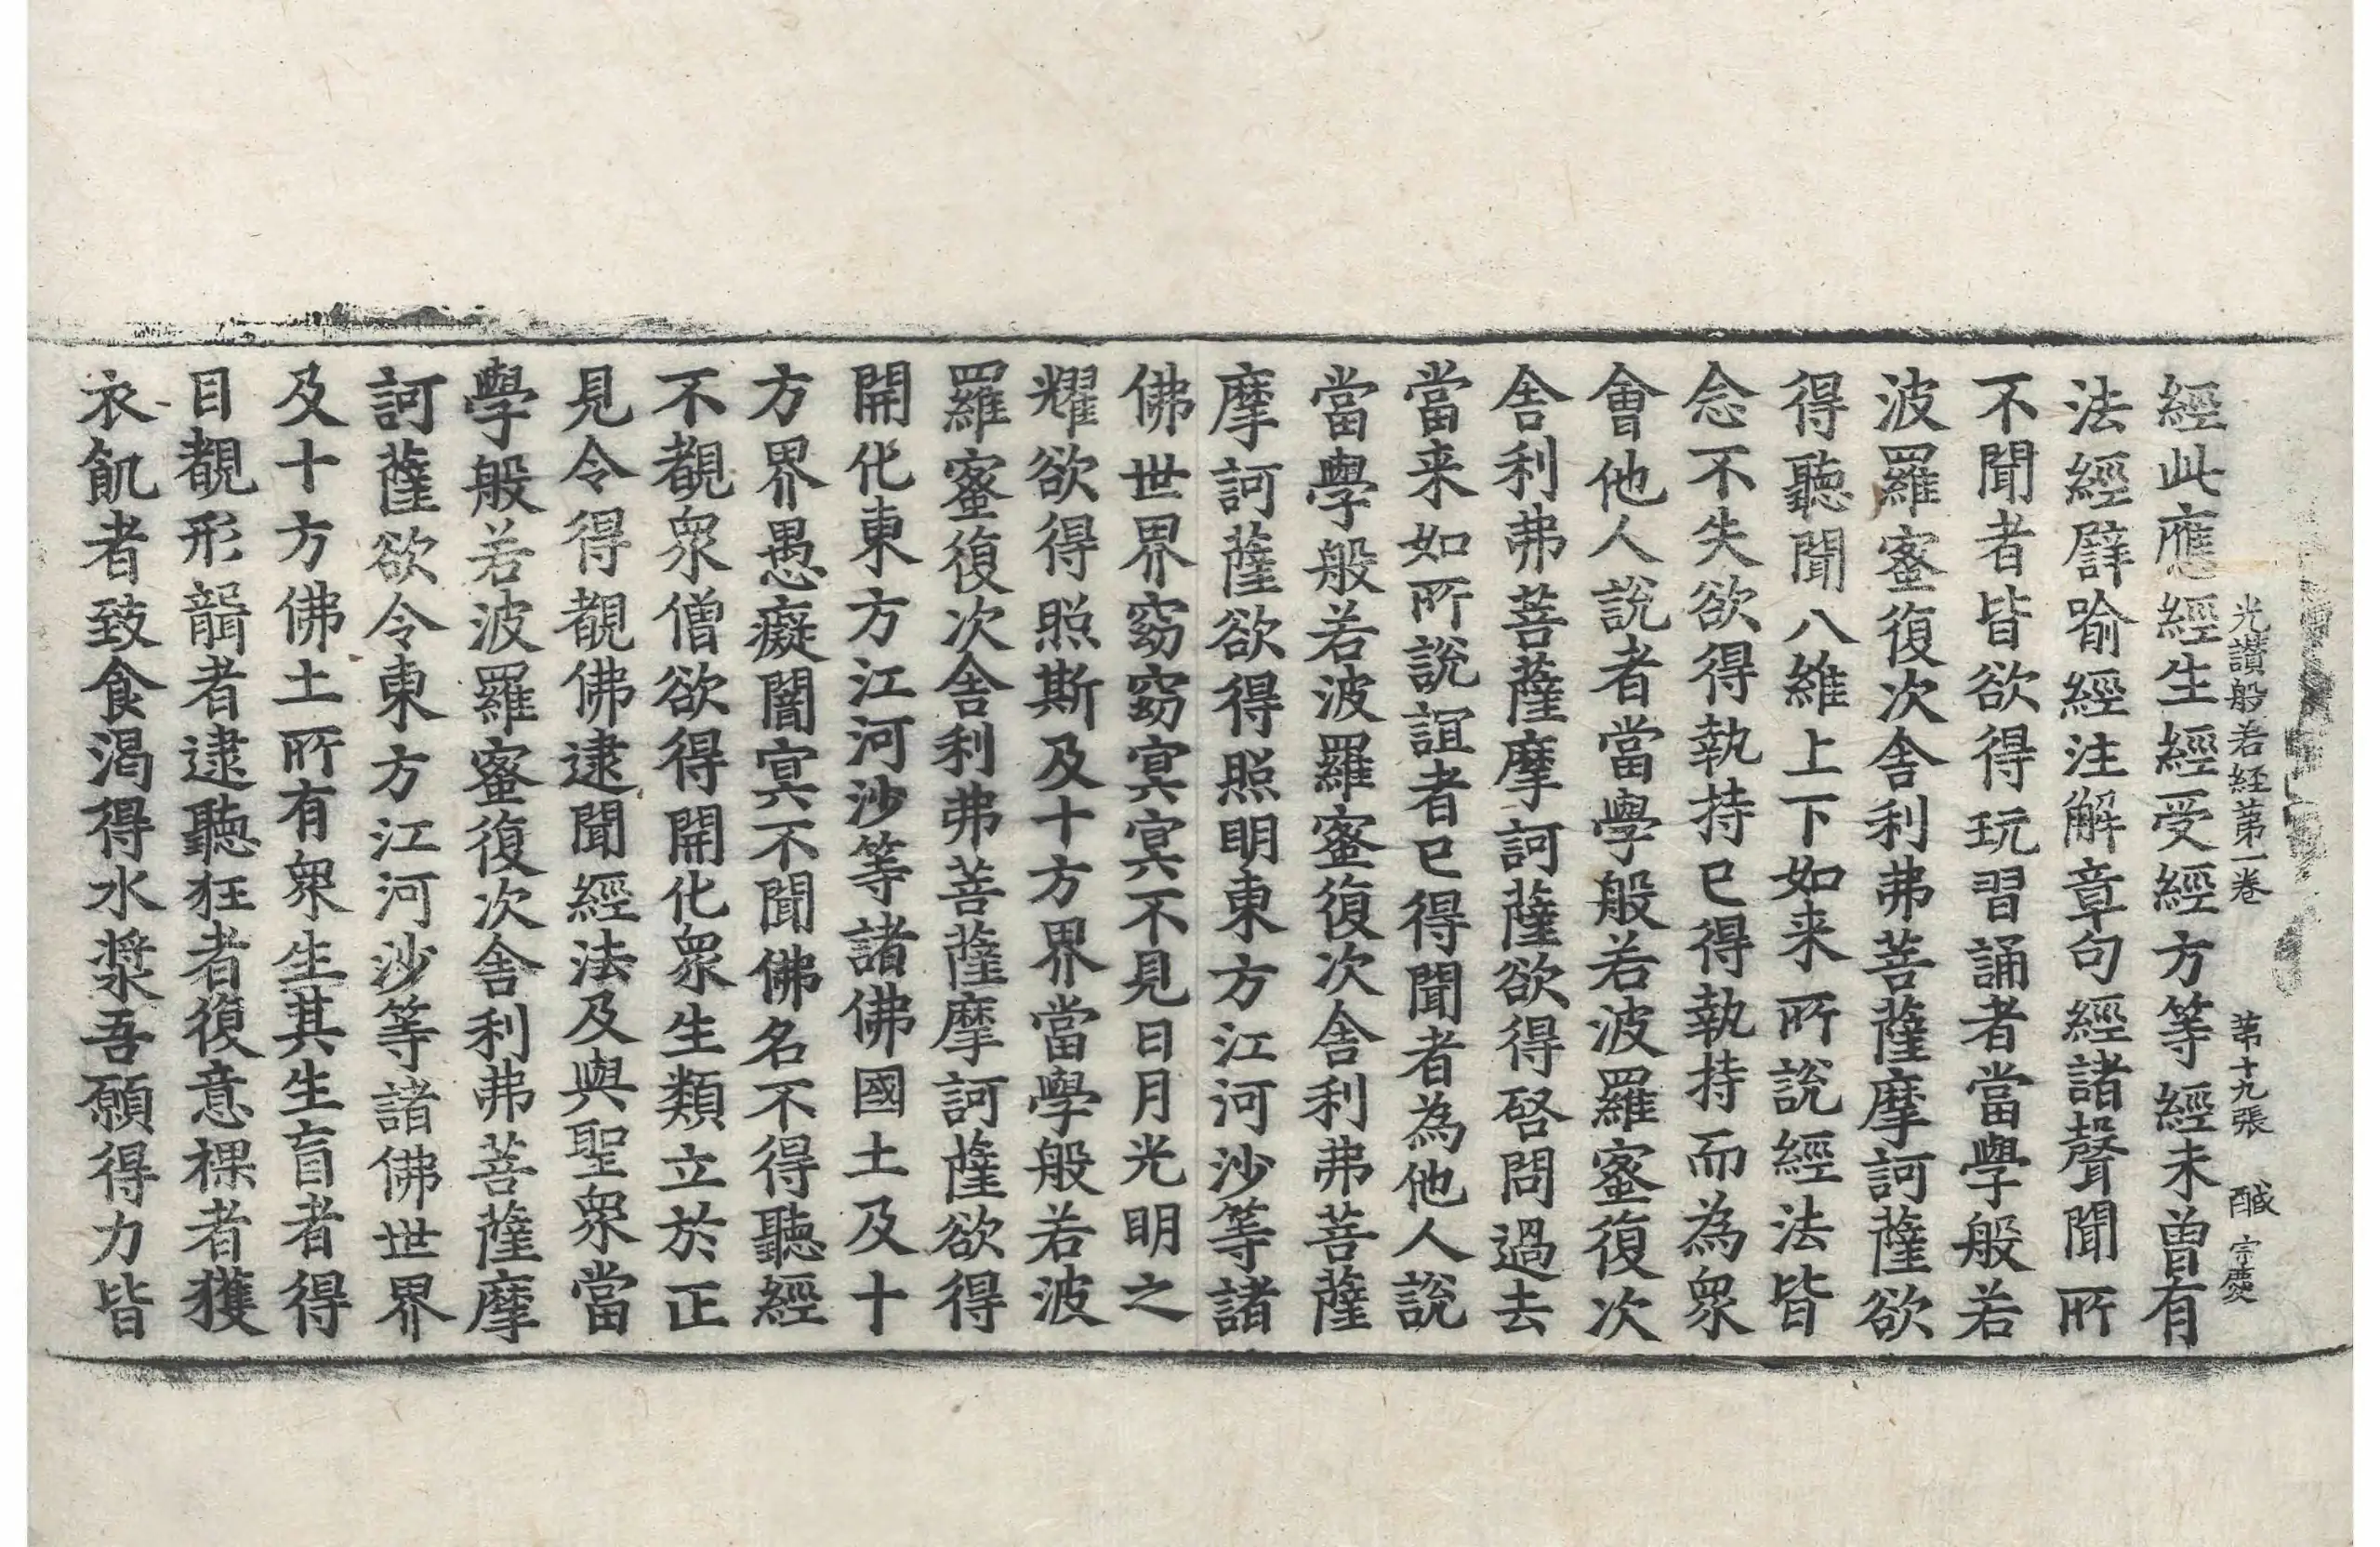 光讃般若経苐一卷　苐十九張　醎　宇慶
經此應經生經受經方等經未曽有
法經辟喻經注解章句經諸聲聞所
不聞者皆欲得玩習誦者當學般若
波羅蜜復次舍利弗菩薩摩訶薩欲
得聽聞八維上下如来所說經法皆
念不失欲得執持已得執持而為衆
會他人說者當學般若波羅蜜復次
舍利弗菩薩摩訶薩欲得啓問過去
當来如所說誼者已得聞者為他人說
當學般若波羅蜜復次舍利弗菩薩
摩訶薩欲得照明東方江河沙等諸
佛世界窈窈冥冥不見日月光明之
耀欲得照斯及十方界當學般若波
羅蜜復次舍利弗菩薩摩訶薩欲得
開化東方江河沙等諸佛國土及十
方界愚癡闇冥不聞佛名不得聽經
不覩衆僧欲得開化衆生類立於正
見令得覩佛逮聞經法及與聖衆當
學般若波羅蜜復次舍利弗菩薩摩
訶薩欲令東方江河沙等諸佛世界
及十方佛土所有衆生其生盲者得
目覩形聾者逮聽狂者復意裸者獲
衣飢者致食渴得水漿吾願得力皆